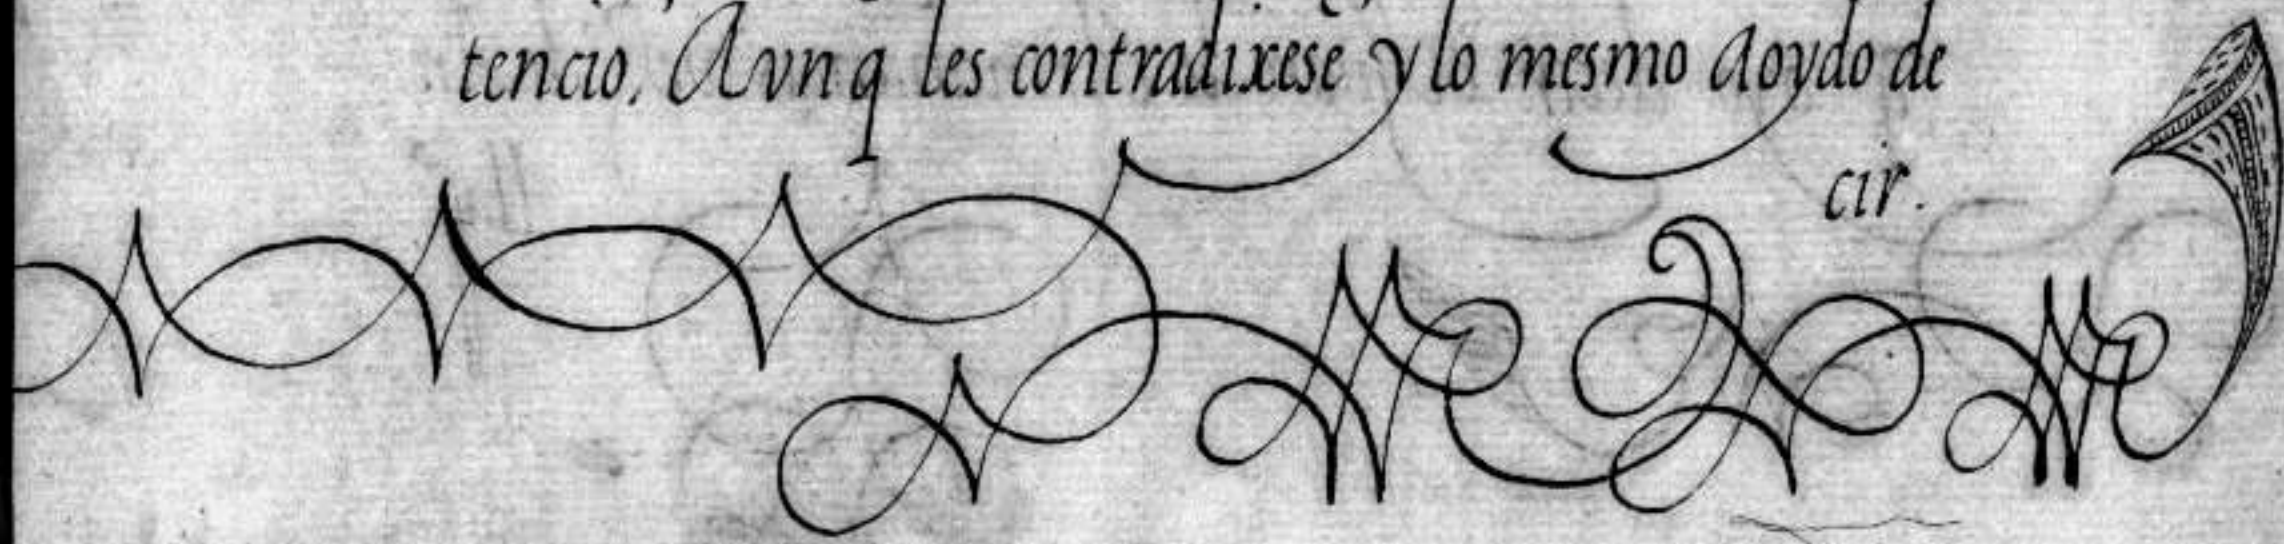 tencio, Avnq les contradixese y lo mesmo aoydo de
cir.